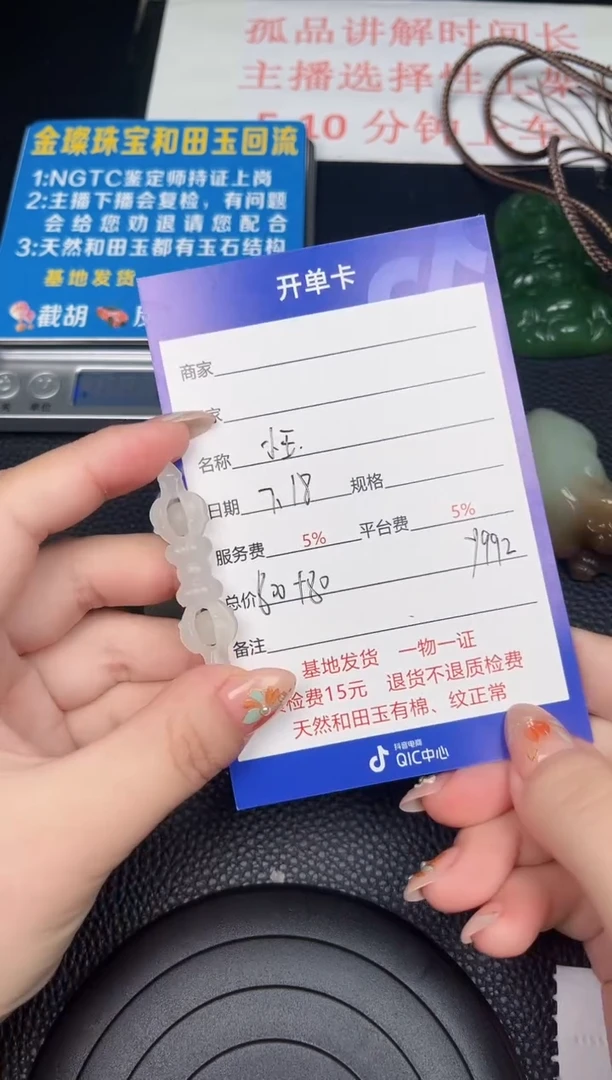 孤品讲解时间长
主播选择性上架
5-10 分钟上车
金璨珠宝和田玉回流
1:NGTC鉴定师持证上岗
2:主播下播会复检,有问题
会给您劝退请您配合
3:天然和田玉都有玉石结构
基地发货
截胡
开单卡
商家
家
名称 小玉.
日期 7.18 规格
服务费 5% 平台费 5%
总价 800+80
备注
基地发货 一物一证
检费15元 退货不退质检费
天然和田玉有棉、纹正常
抖音电商
QIC中心